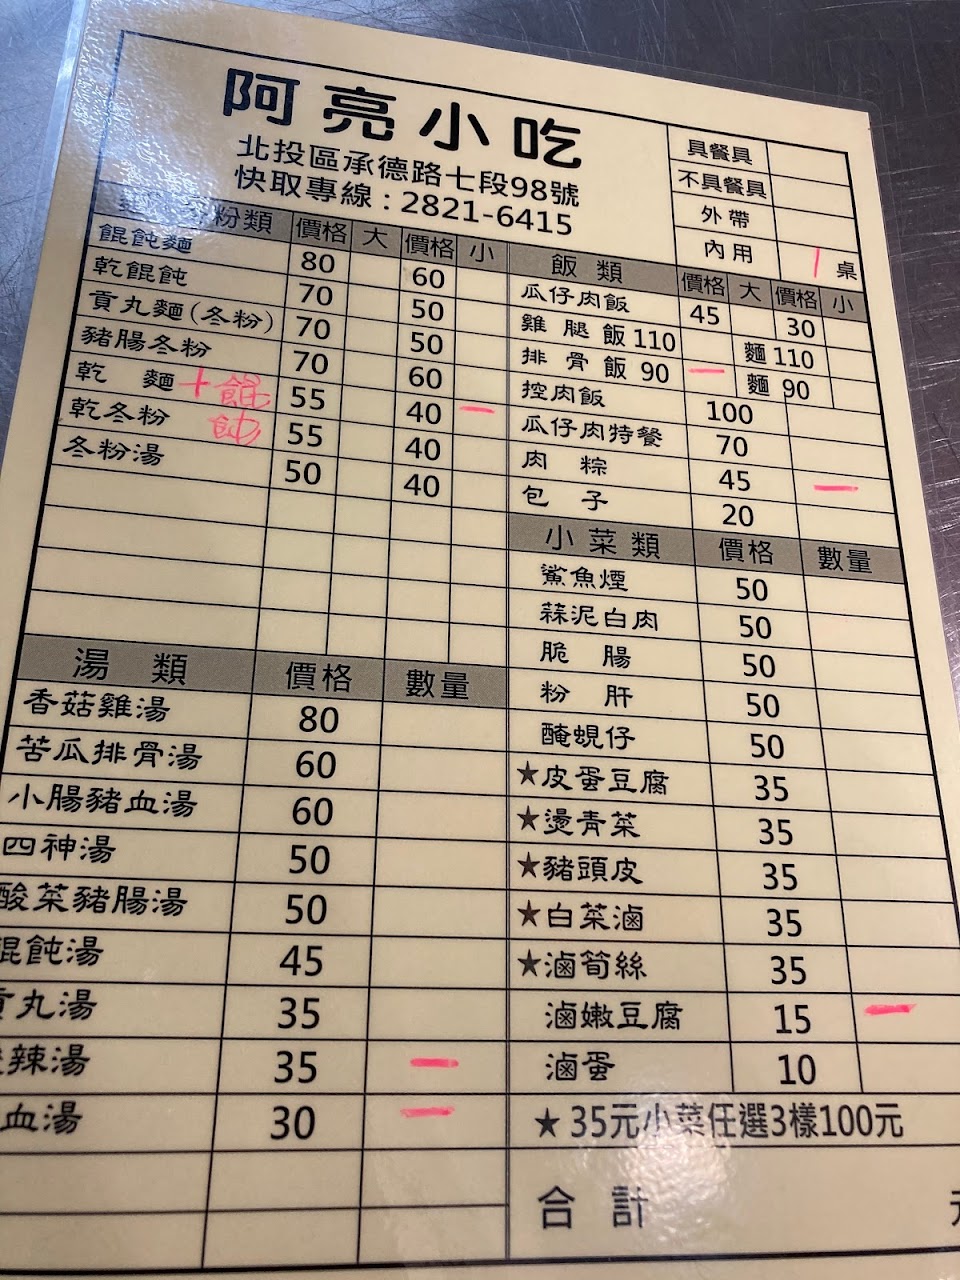 阿亮小吃
北投區承德路七段98號
快取專線：2821-6415
具餐具
不具餐具
外帶
內用 1 桌
粉類 價格 大 價格 小
餛飩麵 80 60
乾餛飩 70 50
貢丸麵(冬粉) 70 50
豬腸冬粉 70 60
乾 麵 + 餛飩 55 40 一
乾冬粉 55 40
冬粉湯 50 40
飯類 價格 大 價格 小
瓜仔肉飯 45 30
雞腿飯 110 麵 110
排骨飯 90 一 麵 90
控肉飯 100
瓜仔肉特餐 70
肉粽 45 一
包子 20
湯類 價格 數量
香菇雞湯 80
苦瓜排骨湯 60
小腸豬血湯 60
四神湯 50
酸菜豬腸湯 50
餛飩湯 45
貢丸湯 35
辣湯 35 一
血湯 30 一
小菜類 價格 數量
鯊魚煙 50
蒜泥白肉 50
脆腸 50
粉肝 50
醃蜆仔 50
★皮蛋豆腐 35
★燙青菜 35
★豬頭皮 35
★白菜滷 35
★滷筍絲 35
滷嫩豆腐 15 一
滷蛋 10
★ 35元小菜任選3樣100元
合計